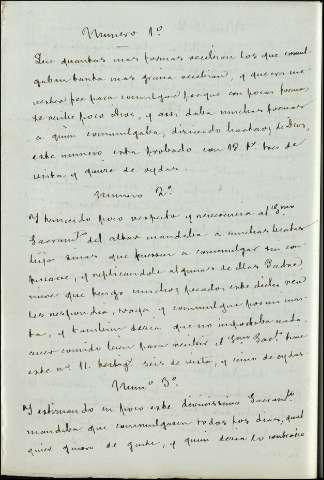 Numero 1º
Que quantas mas formas recibian los que comul
gaban tanta mas gracia recibian, y que era me
nester pez para comulgar porque con pocas formas
se recibe poco Dios, y assi daba muchas formas
a quien comulgaba, diciendo hartaos de Dios,
este numero esta probado con 12 tº tres de
vista, y quince de oydas.
Numero 2º
Y teniendo poco respecto y reverencia al Smo
Sacramto del altar mandaba a muchas beatas
hijas suyas que fuessen a comulgar sin con
fessarse, y replicandole algunas de ellas Padre
mire que tengo muchos pecados, este dicho reo
les respondia, vaya, y comulgue por mi cuen
ta, y tambien decia que no importaba nada
aver comido bien para recibir el Smo Sacto tiene
este nº 11. testigs seis de vista, y cinco de oydas
Numº 3º
Y estimando en poco este divinissimo Sacramto
mandaba que comulgassen todos los dias, qual
quier genero de gente, y quien decia lo contrario